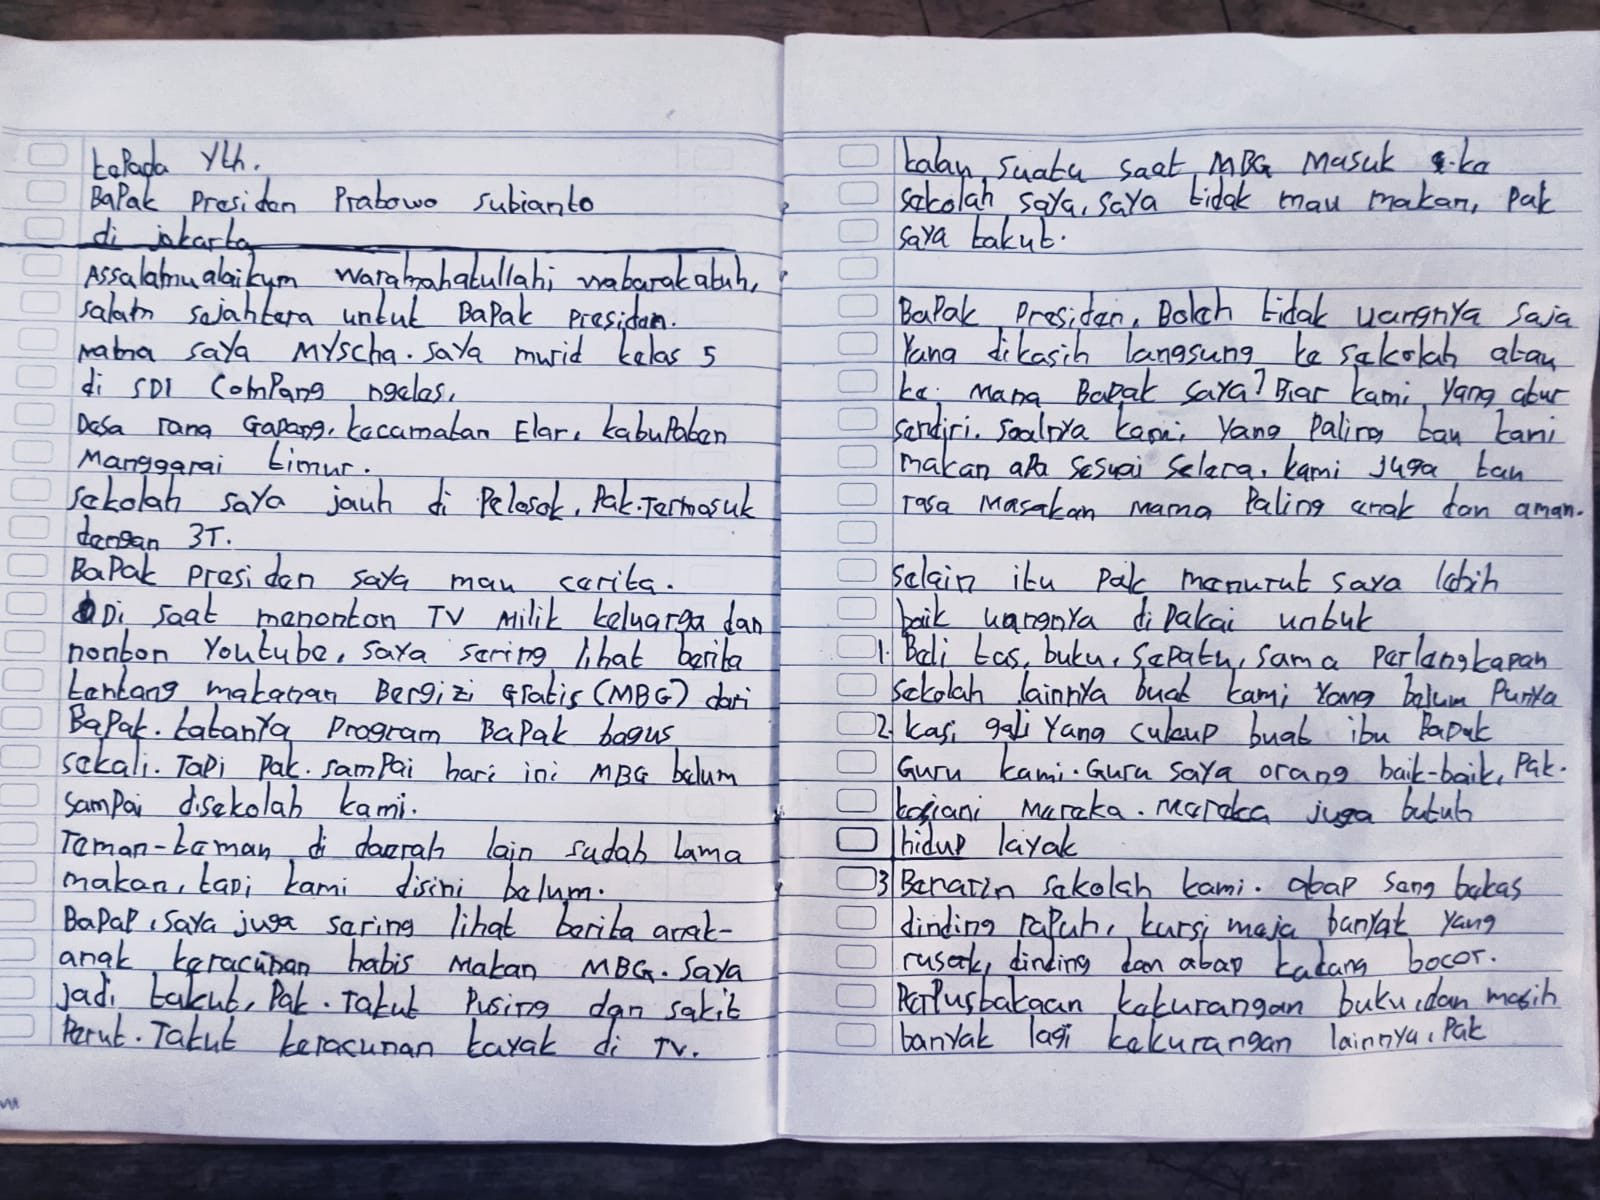 kepada Yth.
Bapak Presiden Prabowo Subianto
di jakarta
Assalamualaikum Warahmahatullahi wabarakatuh,
salam sejahtera untuk Bapak Presiden.
nama saya Myscha. saya murid kelas 5
di SDI Compang ngeles,
Desa rana Gapang, kecamatan Elar, kabupaten
Manggarai timur.
sekolah saya jauh di Pelosok, Pak. Termasuk
dengan 3T.
Bapak presiden saya mau cerita.
Di saat menonton TV Milik keluarga dan
nonton Youtube, saya sering lihat berita
tentang makanan Bergizi Gratis (MBG) dari
Bapak. katanya Program Bapak bagus
sekali. Tapi Pak. sampai hari ini MBG belum
sampai disekolah kami.
Teman-teman di daerah lain sudah lama
makan, tapi kami disini belum.
Bapap, saya juga sering lihat berita anak-
anak keracunan habis Makan MBG. saya
jadi takut, Pak. Takut Pusing dan sakit
Perut. Takut keracunan kayak di TV.
kalau suatu saat MBG Masuk ke
sekolah saya, saya tidak mau makan, Pak
saya takut.
Bapak Presiden, Boleh tidak uangnya saja
Yang dikasih langsung ke sekolah atau
ke Mama Bapak saya? Biar kami yang atur
sendiri. soalnya kami yang Paling tau kami
makan apa sesuai selera, kami juga tau
rasa Masakan Mama Paling enak dan aman.
selain itu pak menurut saya lebih
baik uangnya dipakai untuk
1. Beli tas, buku, sepatu, sama perlengkapan
sekolah lainnya buat kami yang belum Punya
2. kasi gaji Yang cukup buat ibu Bapak
Guru kami. Guru saya orang baik-baik, Pak.
kasiani Mereka. Mereka juga butuh
hidup layak
3 Benarin sekolah kami. atap seng bekas
dinding rapuh, kursi meja banyak yang
rusak, dinding dan atap kadang bocor.
Perpustakaan kekurangan buku, dan masih
banyak lagi kekurangan lainnya, Pak